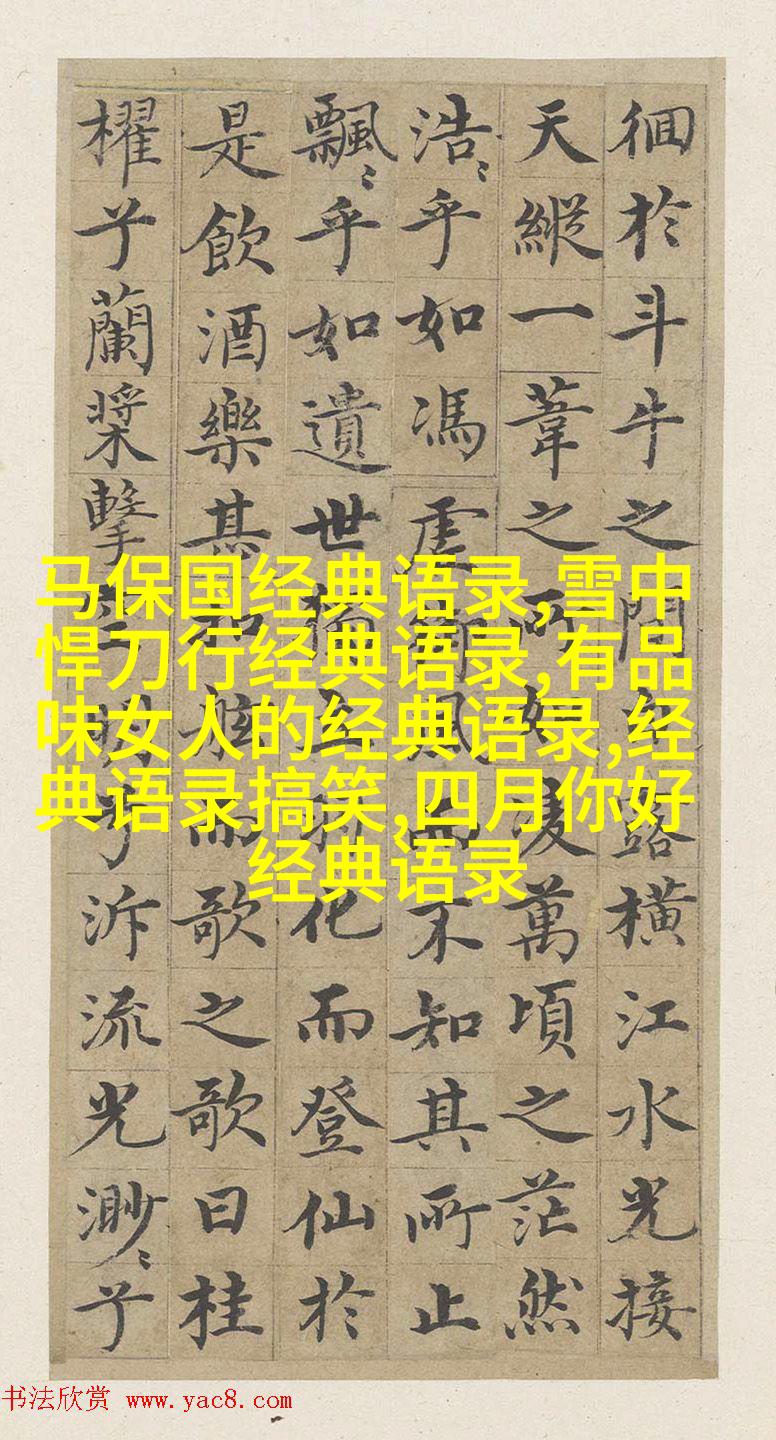 徊於斗牛之間露橫江水光接
天縱一葦之所如凌萬頃之茫然
浩〻乎如馮虛御風而不知其所止
飄〻乎如遺世獨立化而登仙於
是飲酒樂甚舷而歌之歌曰桂
櫂兮蘭槳擊明兮泝流光渺〻兮
马保国经典语录,雪中
悍刀行经典语录,有品
味女人的经典语录,经
典语录搞笑,四月你好
经典语录
书法欣赏 www.yac8.com